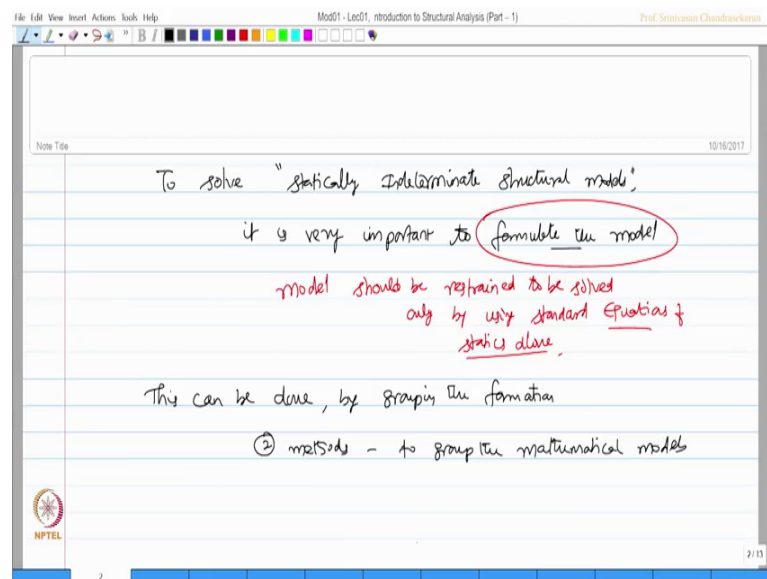 File Edit View Insert Actions Tools Help
Mod01 - Lec01, ntroduction to Structural Analysis (Part – 1)
Prof. Srinivasan Chandrasekaran
B I
Note Title
10/16/2017
To solve "statically Indeterminate structural models",
it is very important to formulate the model
model should be restrained to be solved
only by using standard Equations of
statics alone.
This can be done, by grouping the formation
② methods - to group the mathematical models
NPTEL
2 / 13
2